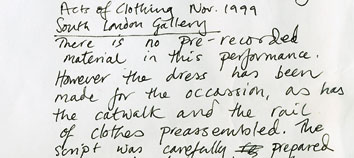 Acts of Clothing Nov. 1999
South London Gallery
There is no pre-recorded
material in this performance.
However the dress has been
made for the occassion, as has
the catwalk and the rail
of clothes preassembled. The
script was carefully to prepared